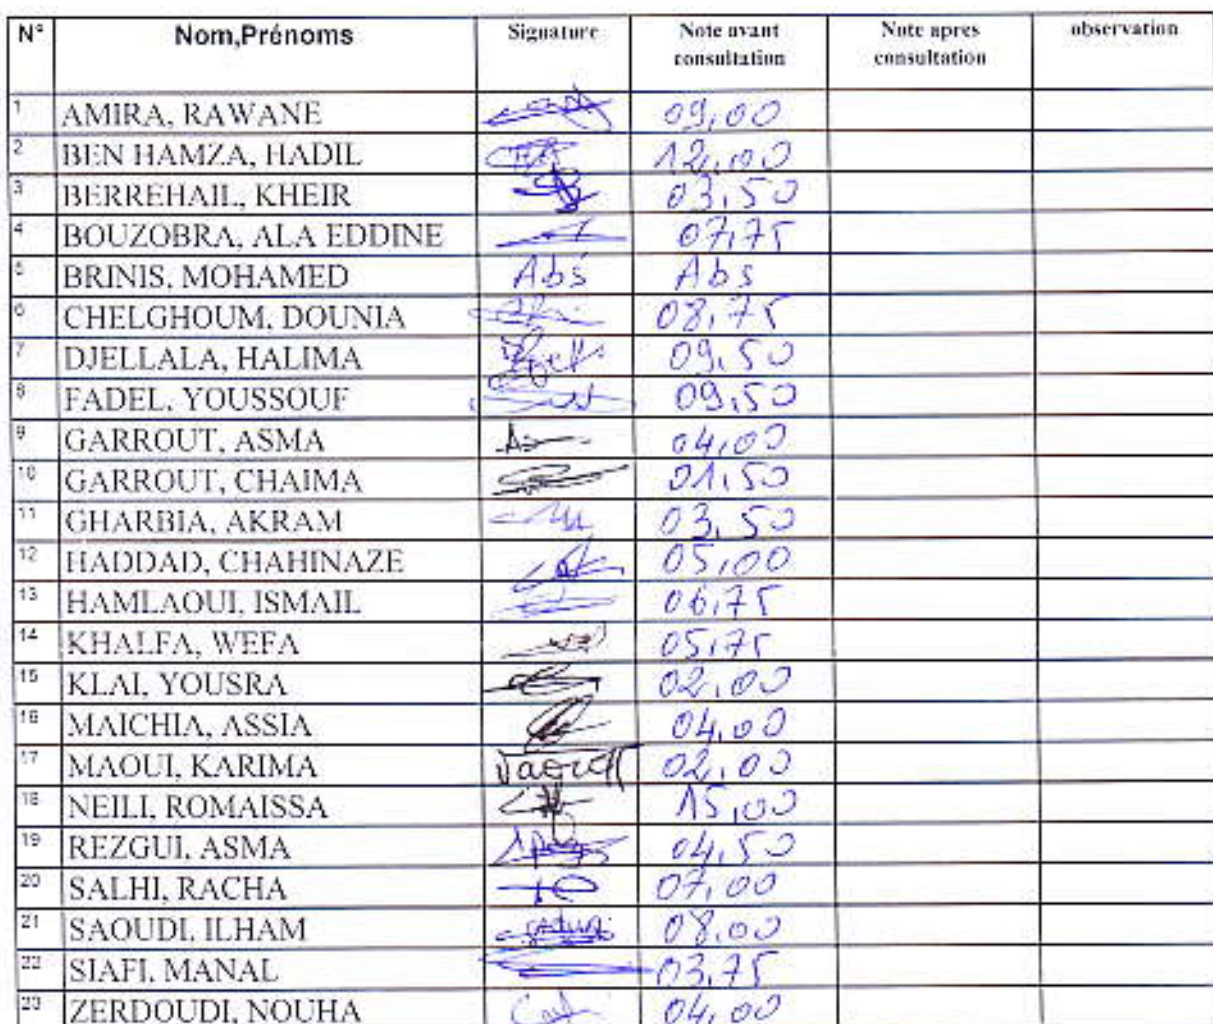 N° Nom,Prénoms Signature Note avant consultation Note apres consultation observation
1 AMIRA, RAWANE 09,00
2 BEN HAMZA, HADIL 12,00
3 BERREHAIL, KHEIR 03,50
4 BOUZOBRA, ALA EDDINE 07,75
5 BRINIS, MOHAMED Abs Abs
6 CHELGHOUM, DOUNIA 08,75
7 DJELLALA, HALIMA 09,50
8 FADEL, YOUSSOUF 09,50
9 GARROUT, ASMA 04,00
10 GARROUT, CHAIMA 01,50
11 GHARBIA, AKRAM 03,50
12 HADDAD, CHAHINAZE 05,00
13 HAMLAOUI, ISMAIL 06,75
14 KHALFA, WEFA 05,75
15 KLAI, YOUSRA 02,00
16 MAICHIA, ASSIA 04,00
17 MAOUI, KARIMA 02,00
18 NEILI, ROMAISSA 15,00
19 REZGUI, ASMA 04,50
20 SALHI, RACHA 07,00
21 SAOUDI, ILHAM 08,00
22 SIAFI, MANAL 03,75
23 ZERDOUDI, NOUHA 04,00